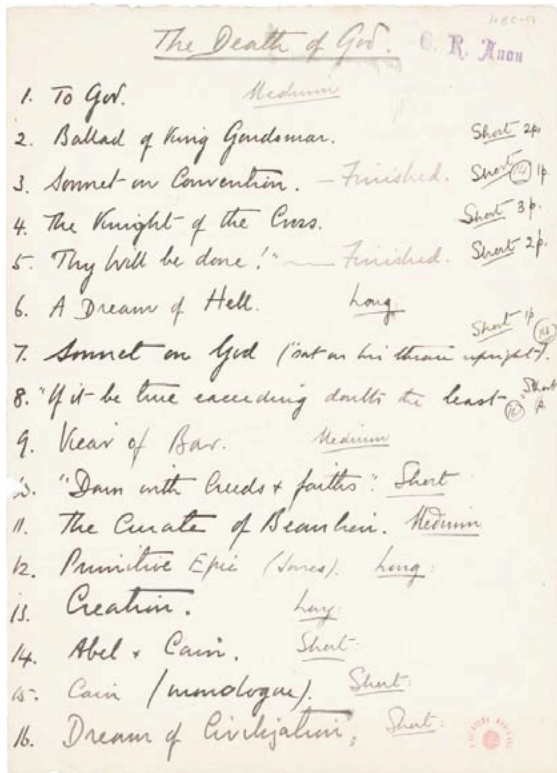 48C-9
The Death of God. C. R. Anon
1. To God. Medium
2. Ballad of King Gondomar. Short 2p.
3. Sonnet on Convention. — Finished. Short 14 1p.
4. The Knight of the Cross. Short 3p.
5. Thy Will be done!" — Finished. Short 2p.
6. A Dream of Hell. Long.
7. Sonnet on God ("sat on his throne upright"). Short 1p 14
8. "If it be true exceeding doubts the least" Short 1p.
9. Vicar of Bar. Medium
10. "Down with Creeds & faiths". Short
11. The Curate of Beaulieu. Medium
12. Primitive Epic (Jones). Long:
13. Creation. Long:
14. Abel & Cain. Short:
15. Cain (monologue). Short:
16. Dream of Civilization. Short: